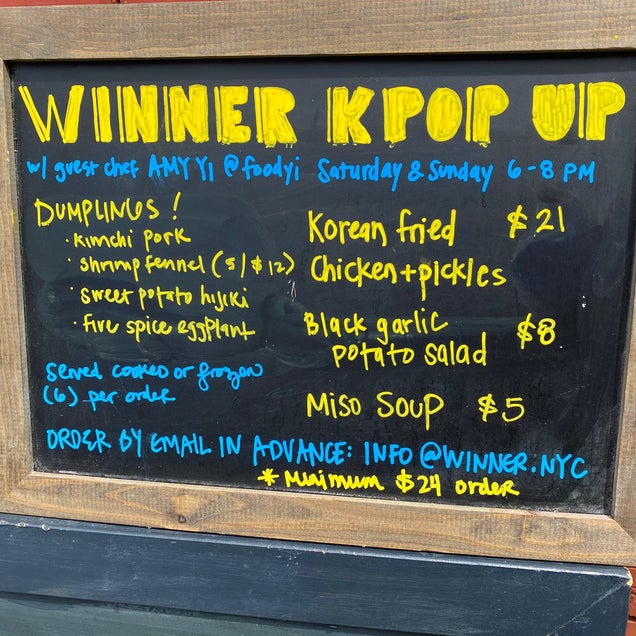 WINNER KPOP UP
w/ guest chef AMY YI @foodyi Saturday & Sunday 6-8 PM
DUMPLINGS!
· kimchi pork
· shrimp fennel (5/$12)
· sweet potato hijiki
· five spice eggplant
served cooked or frozen
(6) per order
Korean fried $21
Chicken+pickles
Black garlic $8
potato salad
Miso Soup $5
ORDER BY EMAIL IN ADVANCE: INFO@WINNER.NYC
* Minimum $24 order